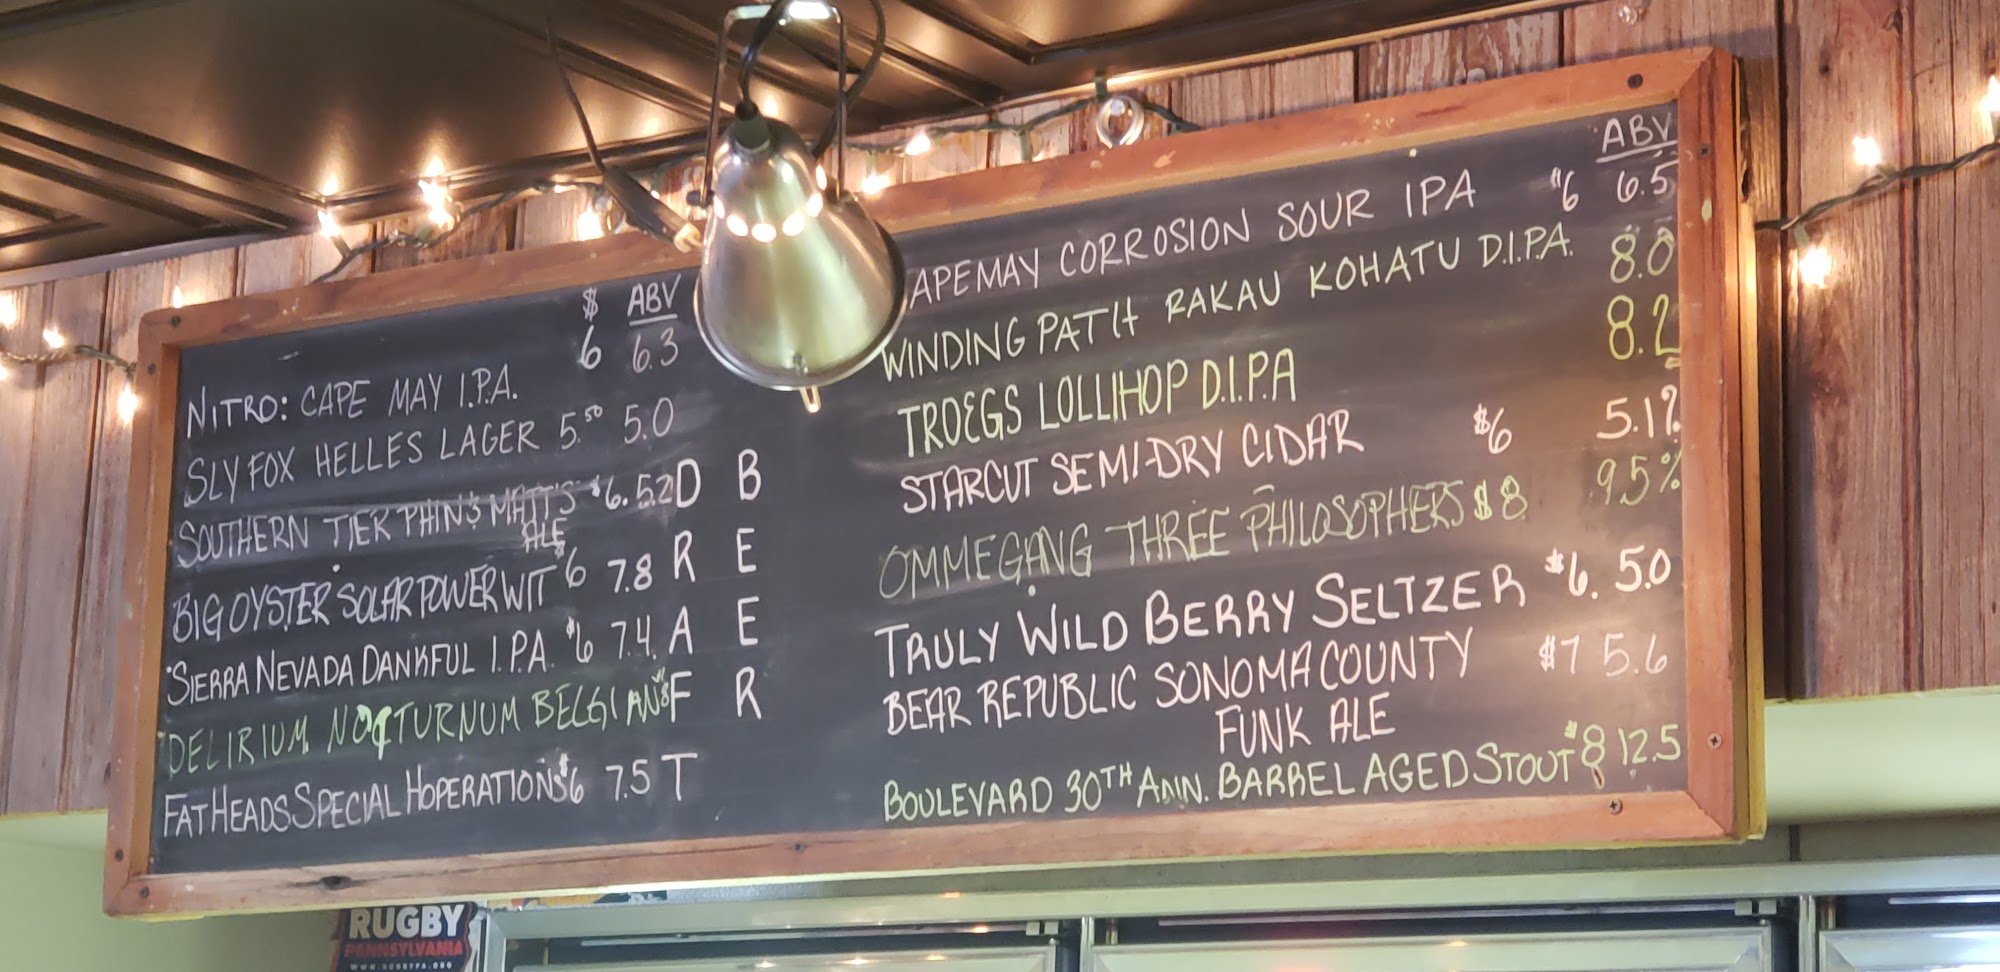 $ ABV
NITRO: CAPE MAY I.P.A. 6 6.3
SLY FOX HELLES LAGER 5.50 5.0
SOUTHERN TIER PHIN & MATT'S $6. 5.2
ALE
BIG OYSTER SOLAR POWER WIT $6 7.8
SIERRA NEVADA DANKFUL I.P.A. $6 7.4
DELIRIUM NOCTURNUM BELGIAN $8
FAT HEADS SPECIAL HOPERATIONS $6 7.5
D
R
A
F
T
B
E
E
R
ABV
APE MAY CORROSION SOUR IPA $6 6.5
WINDING PATH RAKAU KOHATU D.I.P.A. 8.0
TROEGS LOLLIHOP D.I.P.A 8.2
STARCUT SEMI-DRY CIDAR $6 5.1%
OMMEGANG THREE PHILOSOPHERS $8 9.5%
TRULY WILD BERRY SELTZER $6. 5.0
BEAR REPUBLIC SONOMA COUNTY $7 5.6
FUNK ALE
BOULEVARD 30TH ANN. BARREL AGED STOUT $8 12.5
RUGBY
PENNSYLVANIA
WWW.RUGBYPA.ORG